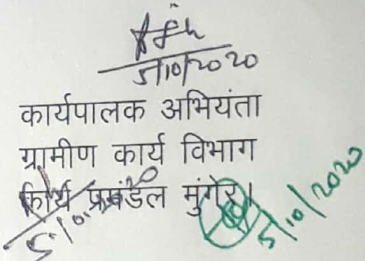 5/10/2020
कार्यपालक अभियंता
ग्रामीण कार्य विभाग
कार्य प्रमंडल मुंगेर।
5/10/2020